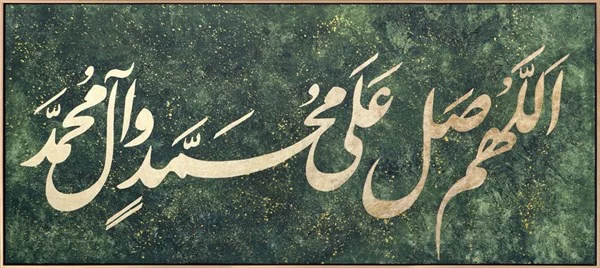 اَللّهُمَ صَل عَلَی مُحَمَّدٍ وَآلِ مُحَمَّد